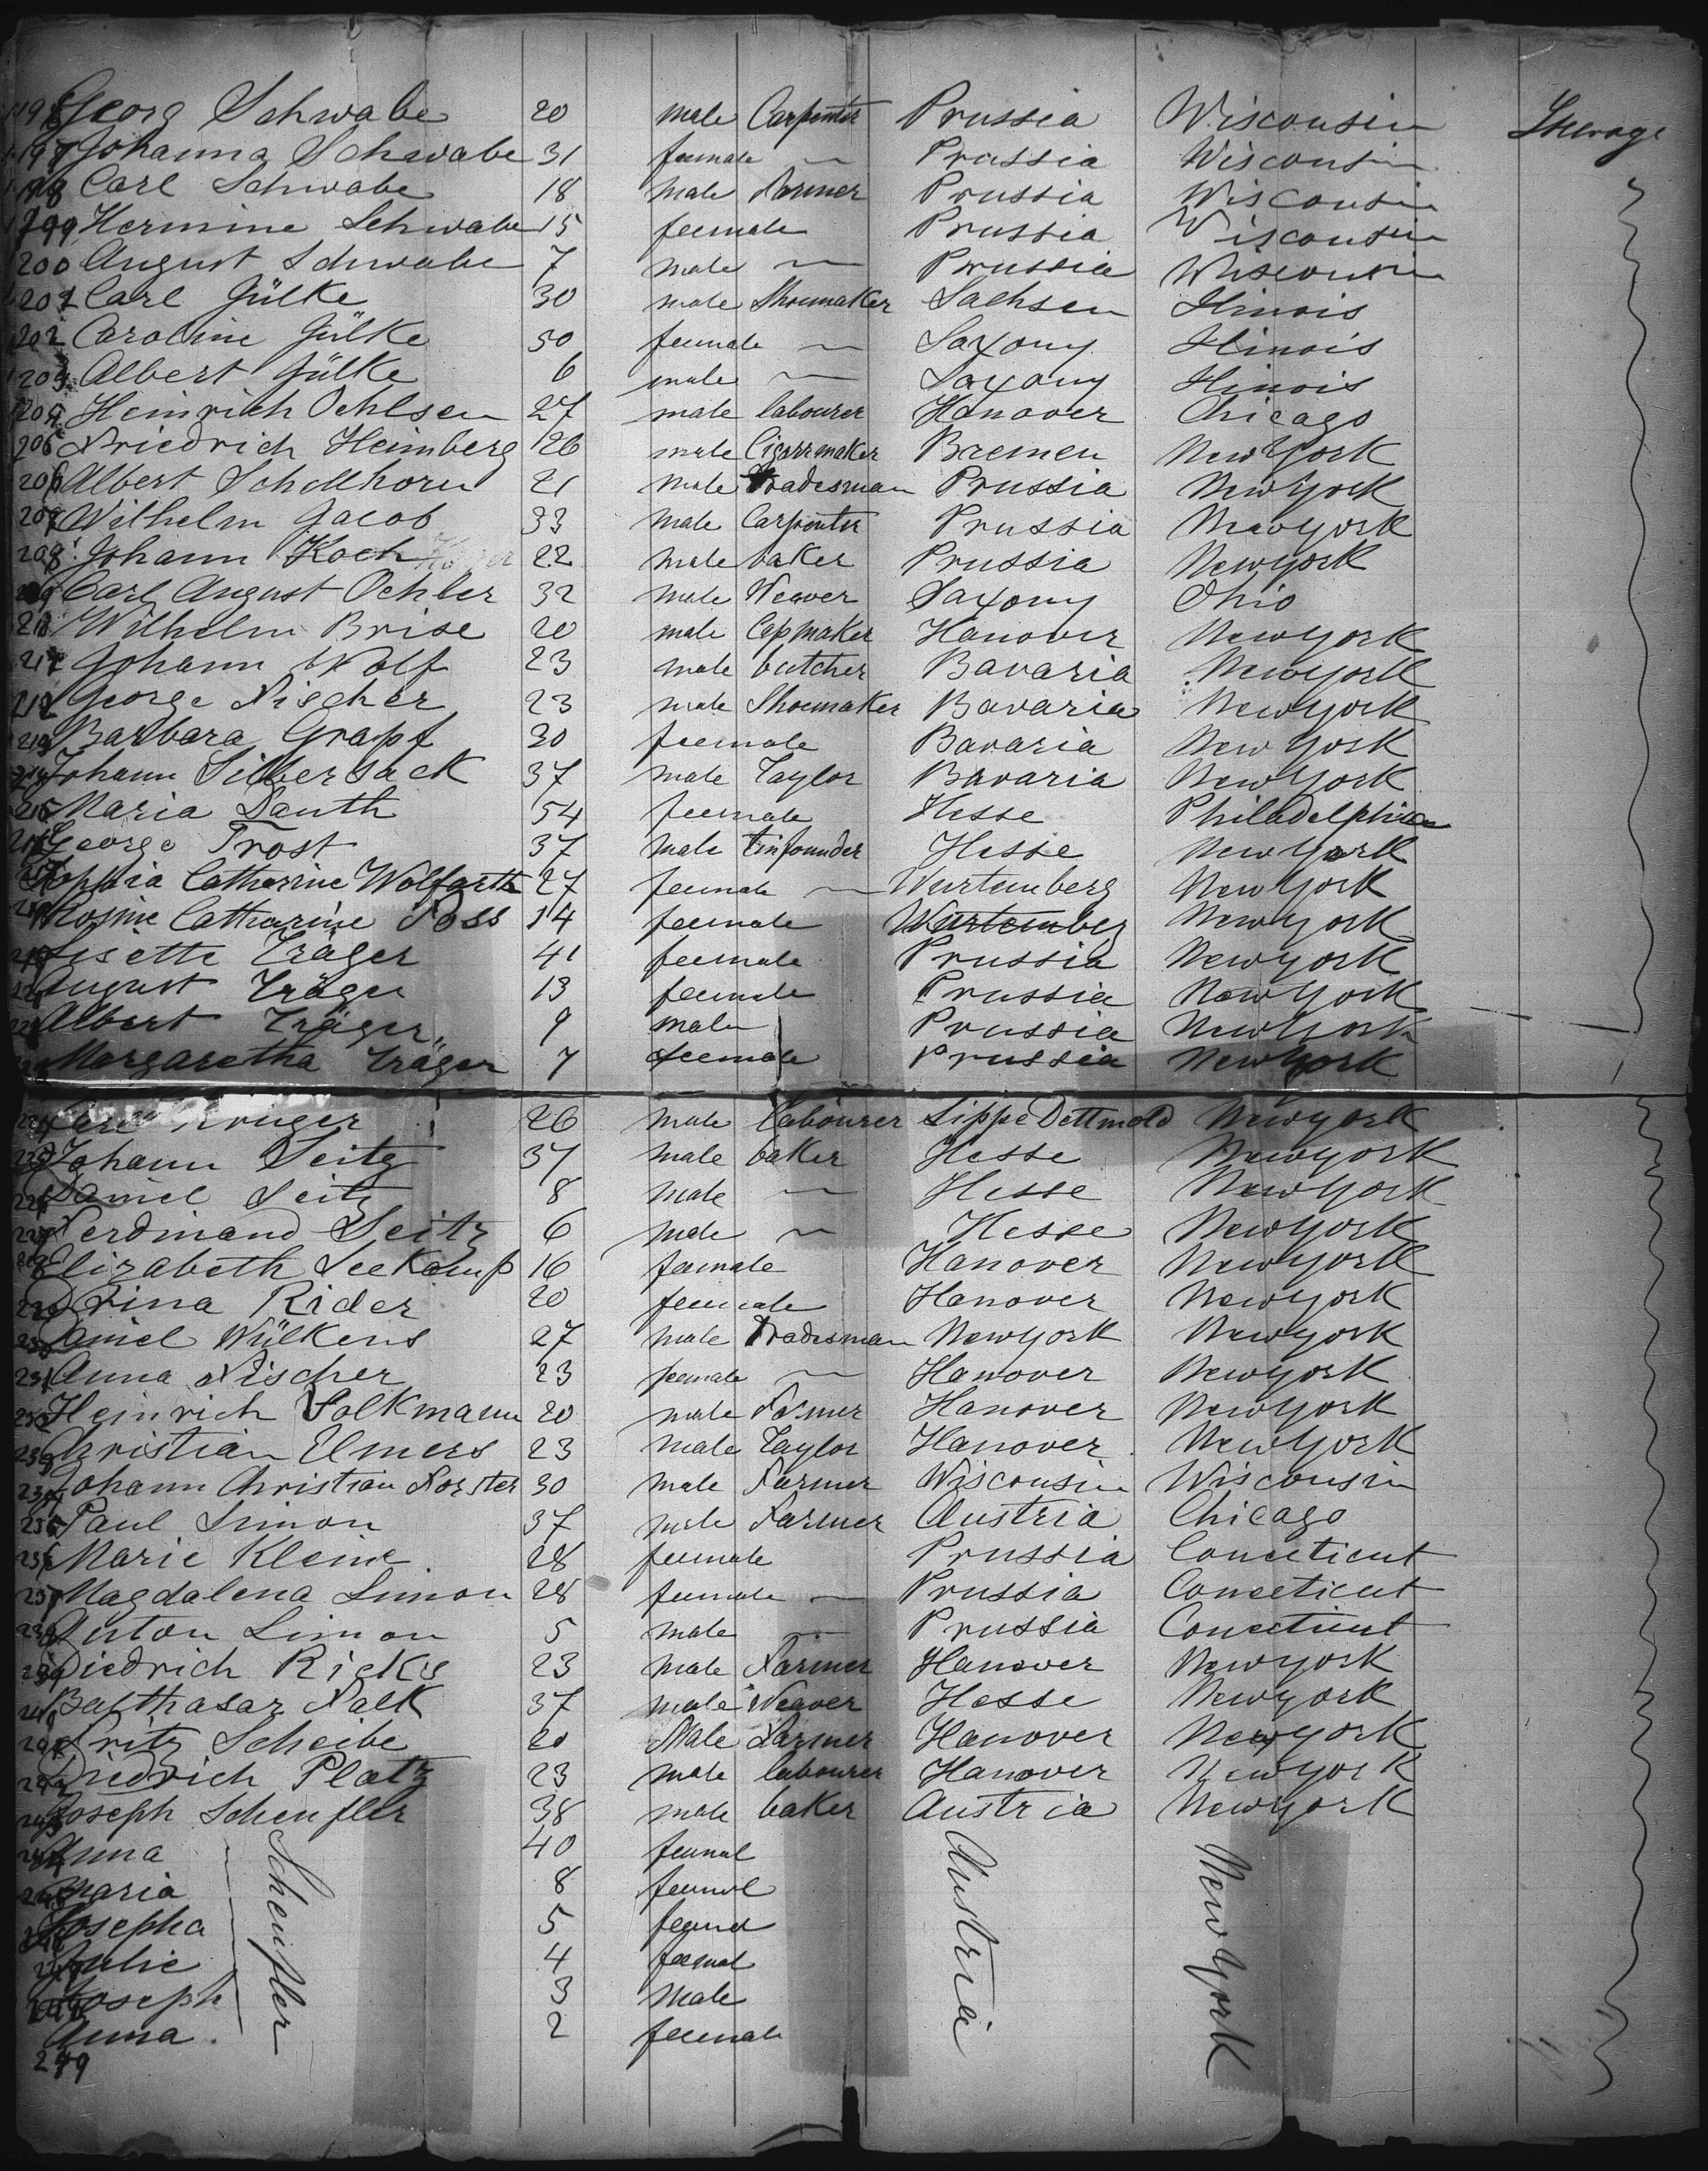 196 Georg Schwabe 20 male Carpenter Prussia Wisconsin Steerage
197 Johanna Schwabe 31 female — Prussia Wisconsin
198 Carl Schwabe 18 male Farmer Prussia Wisconsin
199 Hermine Schwabe 15 feemale Prussia Wisconsin
200 August Schwabe 7 male — Prussia Wisconsin
201 Carl Gülke 30 male Shoemaker Sachsen Ilinois
202 Caroline Gülke 50 feemale — Saxony Ilinois
203 Albert Gülke 6 male — Saxony Ilinois
204 Heinrich Oehlsen 27 male labourer Hanover Chicago
205 Friedrich Heimberg 26 male Cigarrmaker Bremen New York
206 Albert Schellhorn 21 male Tradesman Prussia New York
207 Wilhelm Jacob 33 male Carpenter Prussia New York
208 Johann Koch 22 male baker Prussia New York
209 Carl August Oehler 32 male Weaver Saxony Ohio
210 Wilhelm Brise 20 male Capmaker Hanover New York
211 Johann Wolf 23 male butcher Bavaria New York
212 George Fischer 23 male Shoemaker Bavaria New York
213 Barbara Grapf 30 feemale Bavaria New York
214 Johann Silbersack 37 male Taylor Bavaria New York
215 Maria Lauth 54 feemale Hesse Philadelphia
216 George Trost 37 male tinfounder Hesse New York
217 Sophia Catherine Wolfarth 27 feemale — Wurtemberg New York
218 Rosine Catharine Foss 14 feemale Wurtemberg New York
219 Lisette Träger 41 feemale Prussia New York
August Träger 13 feemale Prussia New York
Albert Träger 9 male Prussia New York
Margaretha Träger 7 feemale Prussia New York
224 Kruger 26 male labourer Lippe Dettmold New York
225 Johann Seitz 37 male baker Hesse New York
226 Daniel Seitz 8 male — Hesse New York
227 Ferdinand Seitz 6 male — Hesse New York
228 Elizabeth Seekamp 16 feemale Hanover New York
229 Trina Rider 20 feemale Hanover New York
230 Daniel Wülkens 27 male Tradesman New York New York
231 Anna Fischer 23 feemale — Hanover New York
232 Heinrich Volkmann 20 male Farmer Hanover New York
233 Christian Elmers 23 male Taylor Hanover New York
234 Johann Christian Forster 30 male Farmer Wisconsin Wisconsin
235 Paul Simon 37 male Farmer Austria Chicago
236 Marie Kleine 28 feemale Prussia Conecticut
237 Magdalena Simon 28 feemale — Prussia Conecticut
238 Anton Simon 5 male — Prussia Conecticut
239 Diedrich Ricks 23 male Farmer Hanover New York
240 Balthasar Falk 37 male Weaver Hesse New York
241 Fritz Scheibe 20 Male Farmer Hanover New York
242 Diedrich Platz 23 male labourer Hanover New York
243 Joseph Scheufler 38 male baker Austria New York
Anna Scheufler 40 feemal Austria New York
Maria 8 feemal
Josepha 5 feemal
Julie 4 feemal
Joseph 3 Male
Anna 2 feemale
249